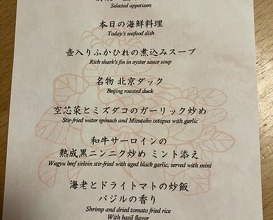 Selected appetizers
本日の海鮮料理
Today's seafood dish
壺入りふかひれの煮込みスープ
Rich shark's fin in oyster sauce soup
名物 北京ダック
Beijing roasted duck
空芯菜とミズダコのガーリック炒め
Stir-fried water spinach and Mizudako octopus with garlic
和牛サーロインの
熟成黒ニンニク炒め ミント添え
Wagyu beef sirloin stir-fried with aged black garlic, served with mint
海老とドライトマトの炒飯
バジルの香り
Shrimp and dried tomato fried rice
With basil flavor